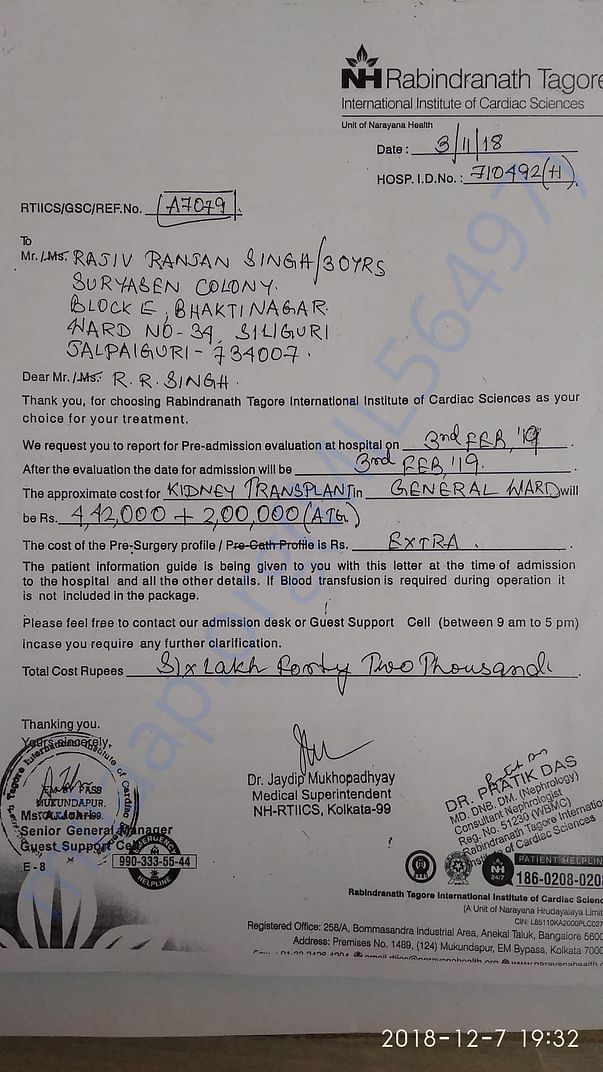 NH Rabindranath Tagore
International Institute of Cardiac Sciences
Unit of Narayana Health
Date : 3/11/18
HOSP. I.D.No. : 710492(H)
RTIICS/GSC/REF.No. A7079
To
Mr./Ms. RAJIV RANJAN SINGH/30YRS
SURYASEN COLONY.
BLOCK E, BHAKTINAGAR.
WARD NO-34, SILIGURI
JALPAIGURI-734007.
Dear Mr./Ms. R.R. SINGH.
Thank you, for choosing Rabindranath Tagore International Institute of Cardiac Sciences as your
choice for your treatment.
We request you to report for Pre-admission evaluation at hospital on 3rd FEB, '19.
After the evaluation the date for admission will be 3rd FEB, '19.
The approximate cost for KIDNEY TRANSPLANT in GENERAL WARD will
be Rs. 4,42,000 + 2,00,000 (ATG)
The cost of the Pre-Surgery profile / Pre-Cath Profile is Rs. EXTRA.
The patient information guide is being given to you with this letter at the time of admission
to the hospital and all the other details. If Blood transfusion is required during operation it
is not included in the package.
Please feel free to contact our admission desk or Guest Support Cell (between 9 am to 5 pm)
incase you require any further clarification.
Total Cost Rupees Six Lakh Forty Two Thousand
Thanking you.
Yours sincerely,
EM BY PASS
MUKUNDAPUR.
Senior General Manager
Guest Support Cell
E - 8
EMERGENCY
990-333-55-44
HELPLINE
Dr. Jaydip Mukhopadhyay
Medical Superintendent
NH-RTIICS, Kolkata-99
DR. PRATIK DAS
MD. DNB. DM. (Nephrology)
Consultant Nephrologist
Reg. No. 51230 (WBMC)
Rabindranath Tagore Internation
Institute of Cardiac Sciences
NH
24/7
PATIENT HELPLINE
186-0208-0208
Rabindranath Tagore International Institute of Cardiac Scienc
(A Unit of Narayana Hrudayalaya Limit
CIN: L85110KA2000PLC027
Registered Office: 258/A, Bommasandra Industrial Area, Anekal Taluk, Bangalore 5600
Address: Premises No. 1489, (124) Mukundapur, EM Bypass, Kolkata 7000
2018-12-7 19:32